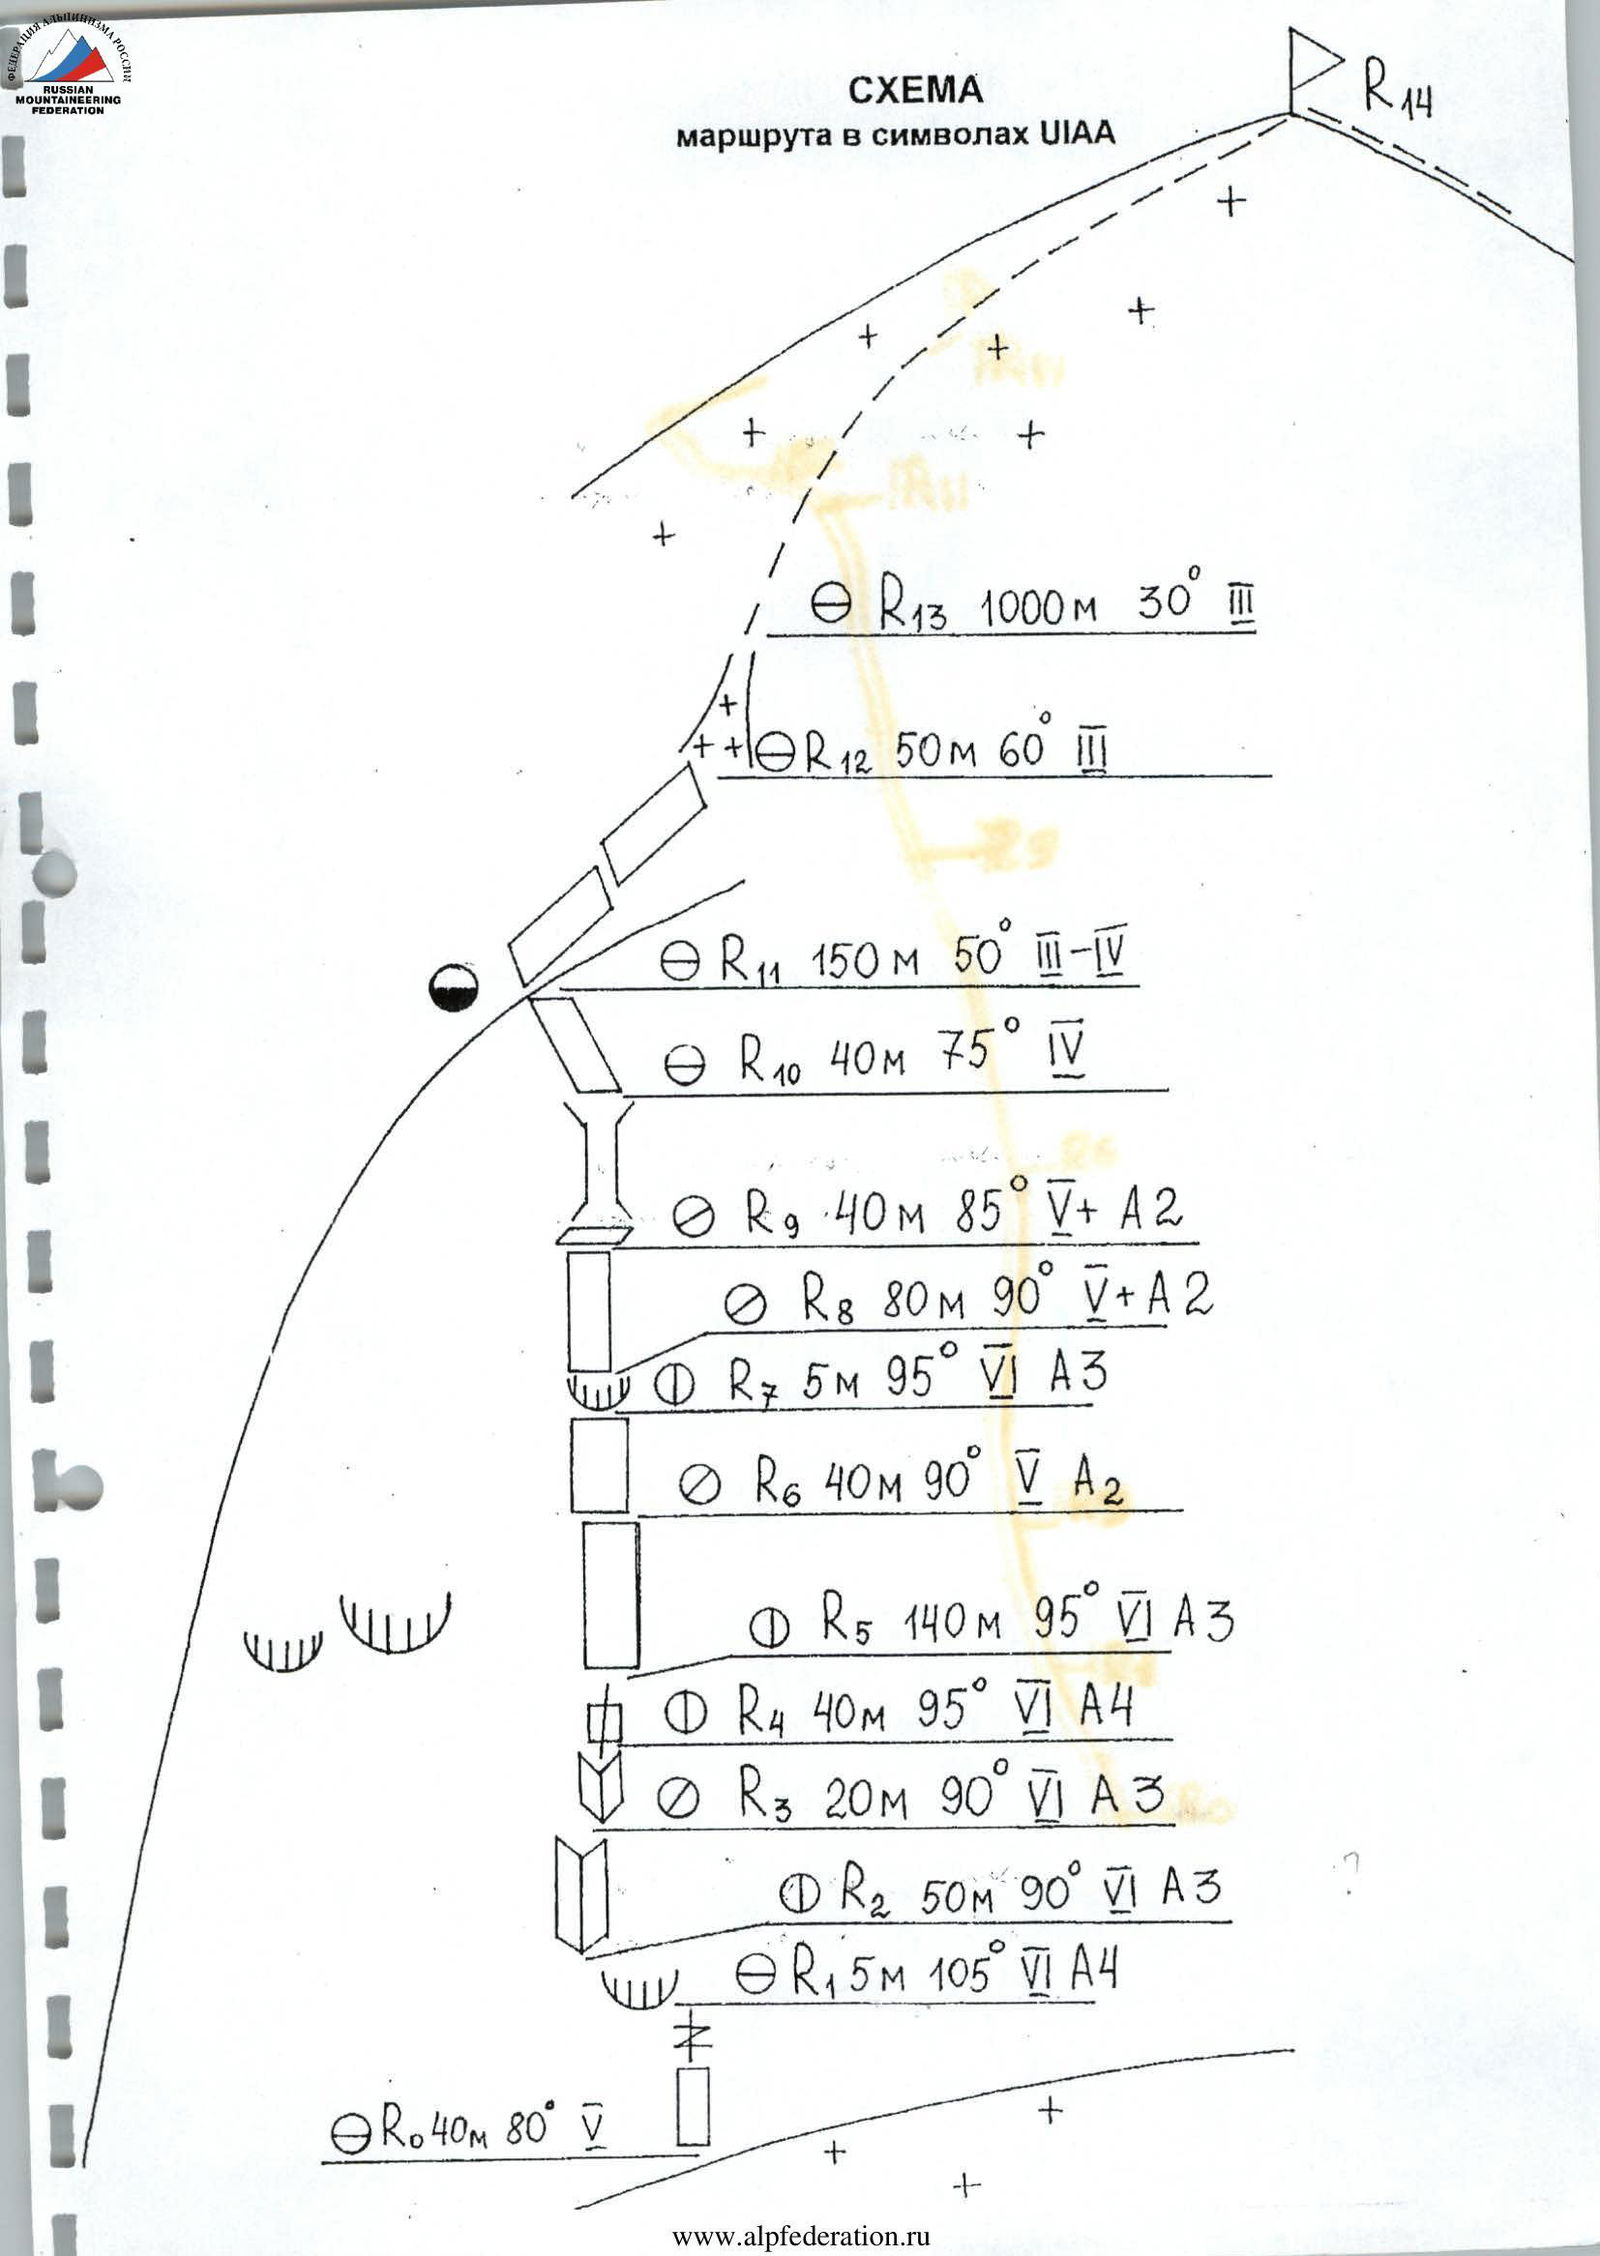 ФЕДЕРАЦИЯ АЛЬПИНИЗМА РОССИИ
RUSSIAN
MOUNTAINEERING
FEDERATION
СХЕМА
маршрута в символах UIAA
R14
R13 1000м 30° III
R12 50м 60° III
R11 150м 50° III-IV
R10 40м 75° IV
R9 40м 85° V+ A2
R8 80м 90° V+ A2
R7 5м 95° VI A3
R6 40м 90° V A2
R5 140м 95° VI A3
R4 40м 95° VI A4
R3 20м 90° VI A3
R2 50м 90° VI A3
R1 5м 105° VI A4
R0 40м 80° V
www.alpfederation.ru